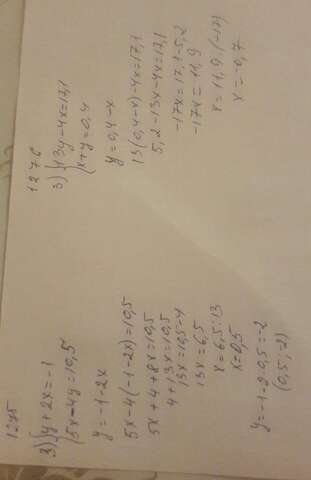 1275
3) {y+2x=-1
{5x-4y=10,5
y=-1-2x
5x-4(-1-2x)=10,5
5x+4+8x=10,5
4+13x=10,5
13x=10,5-4
13x=6,5
x=6,5:13
x=0,5
y=-1-2·0,5=-2
(0,5;-2)
1276
3) {13y-4x=17,1
{x+y=0,4
y=0,4-x
13(0,4-x)-4x=17,1
5,2-13x-4x=17,1
-17x=17,1-5,2
-17x=11,9
x=11,9:(-17)
x=-0,7